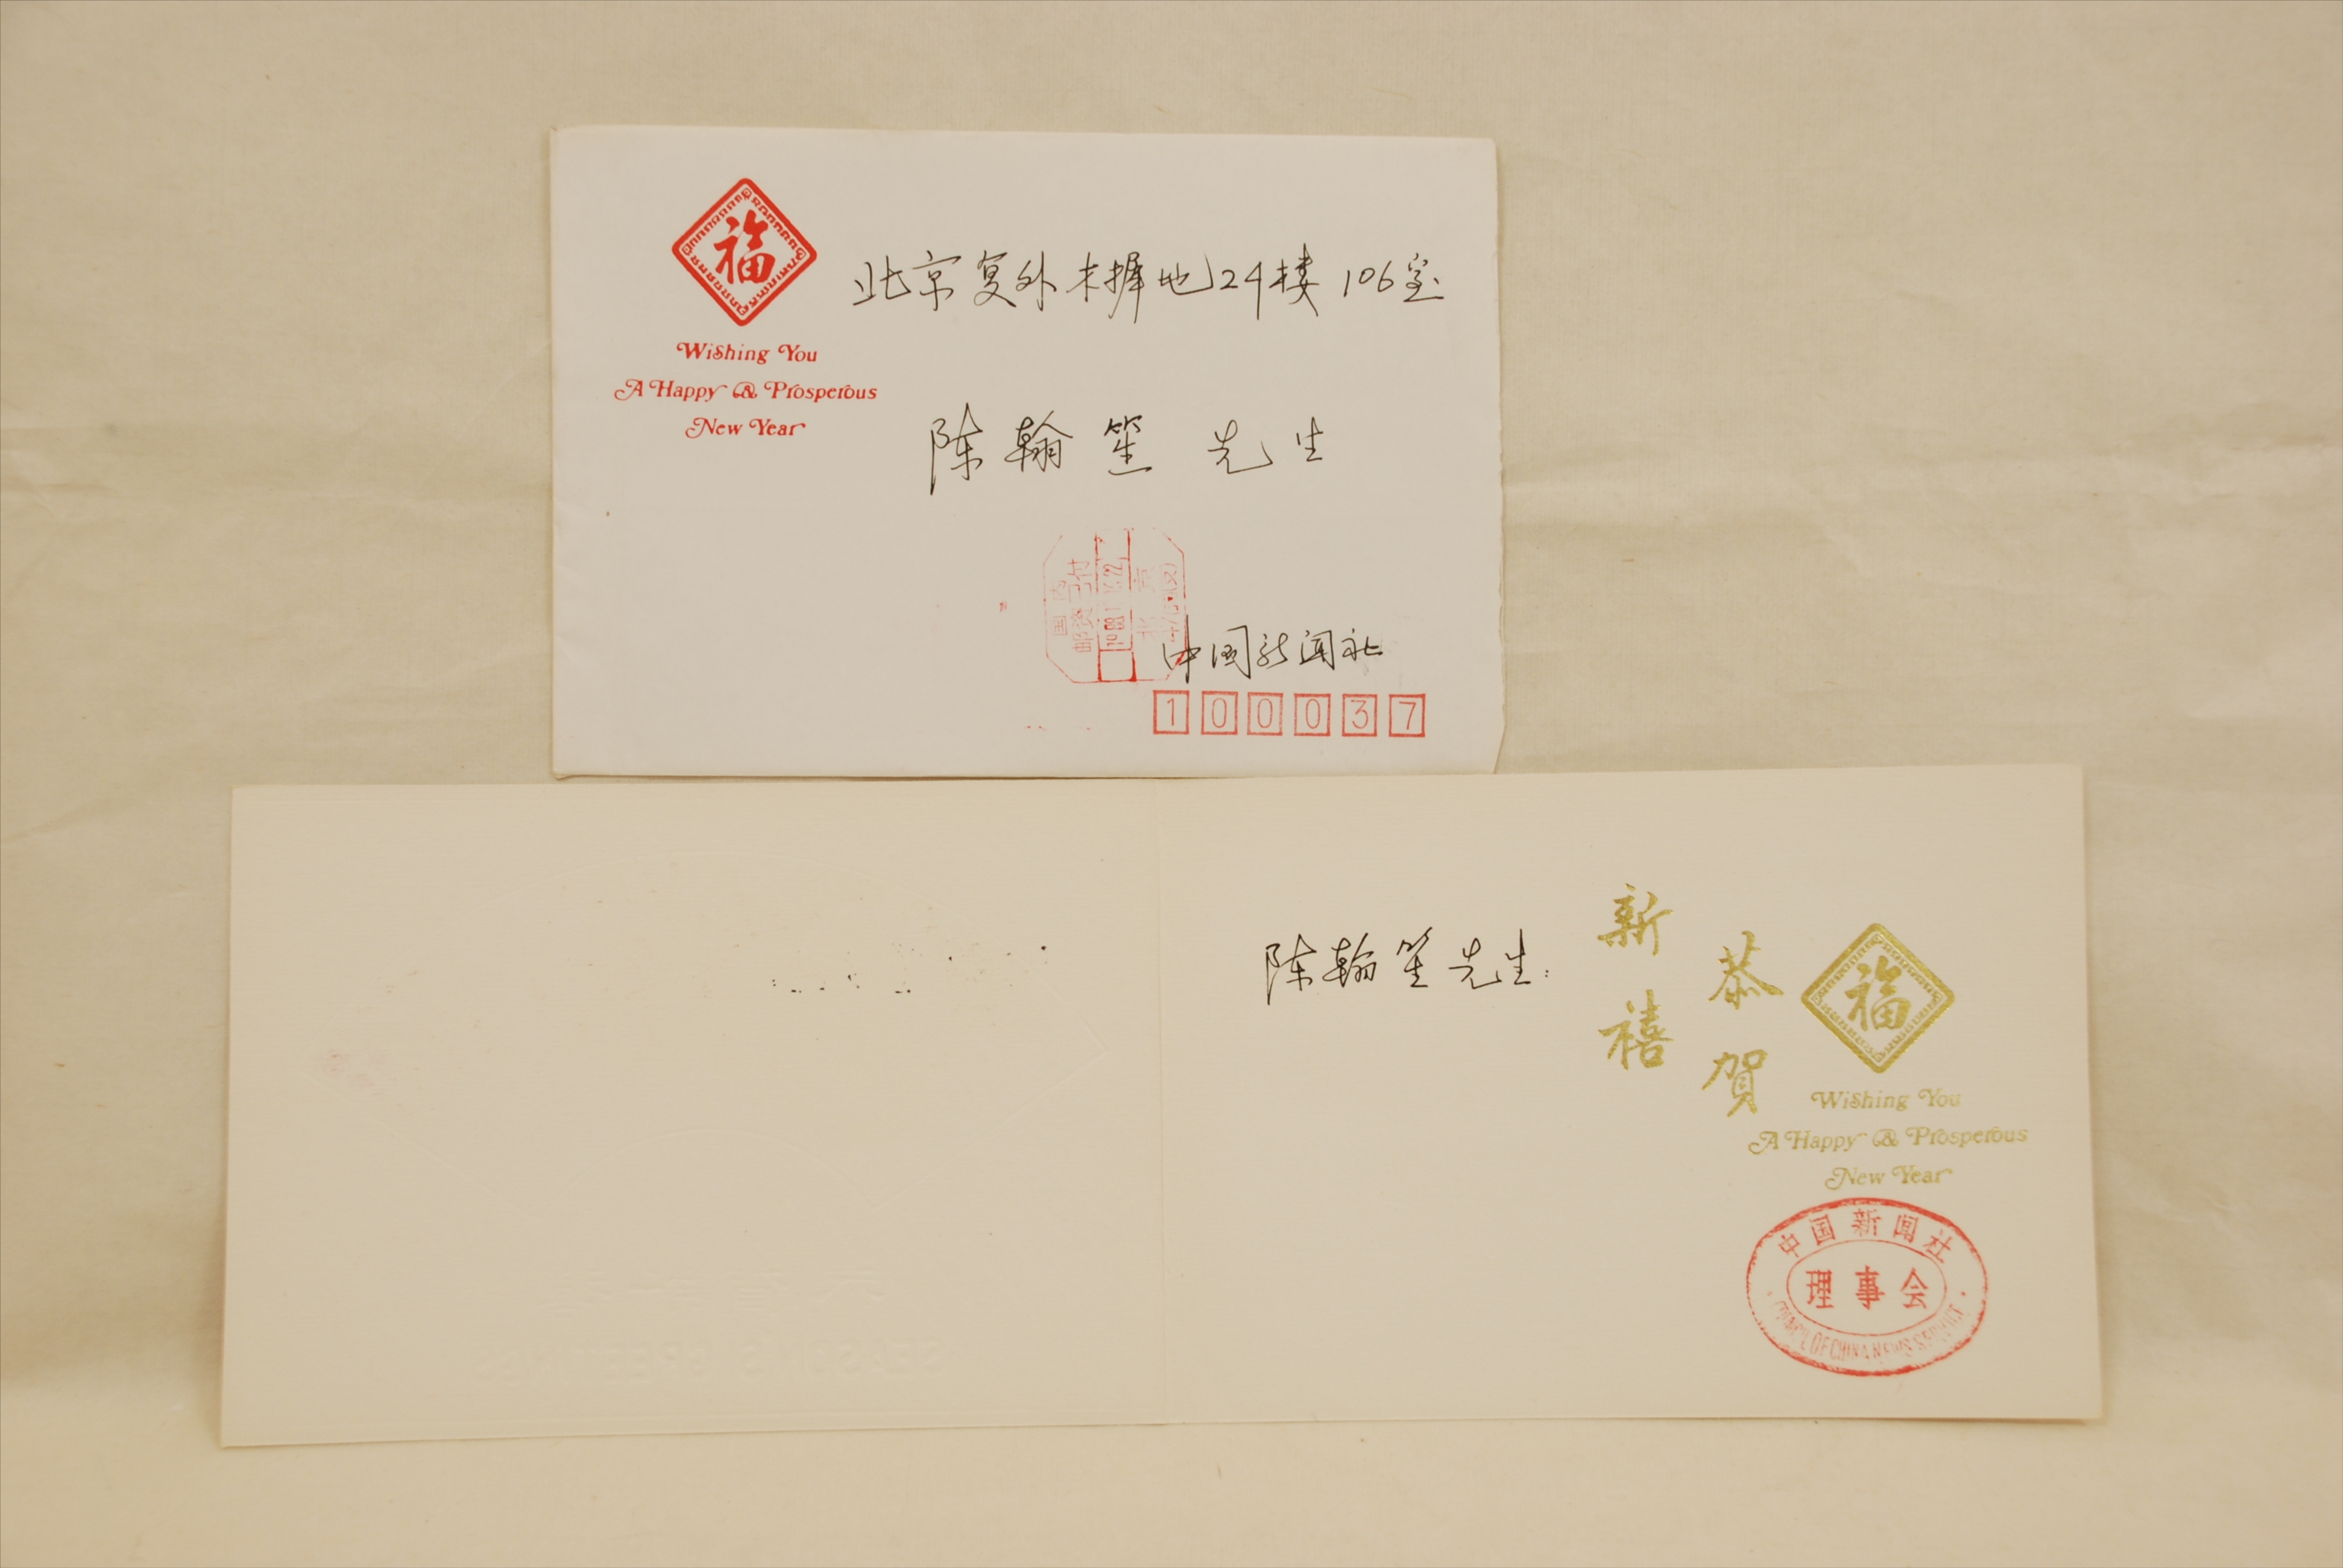 福
Wishing You
A Happy & Prosperous
New Year
北京复外木樨地24楼106室
陈翰笙 先生
国内
邮资已付
北京
中国新闻社
100037
陈翰笙先生:
恭贺
新禧
福
Wishing You
A Happy & Prosperous
New Year
中国新闻社
理事会
COUNCIL OF CHINA NEWS SERVICE
SEASON'S GREETINGS